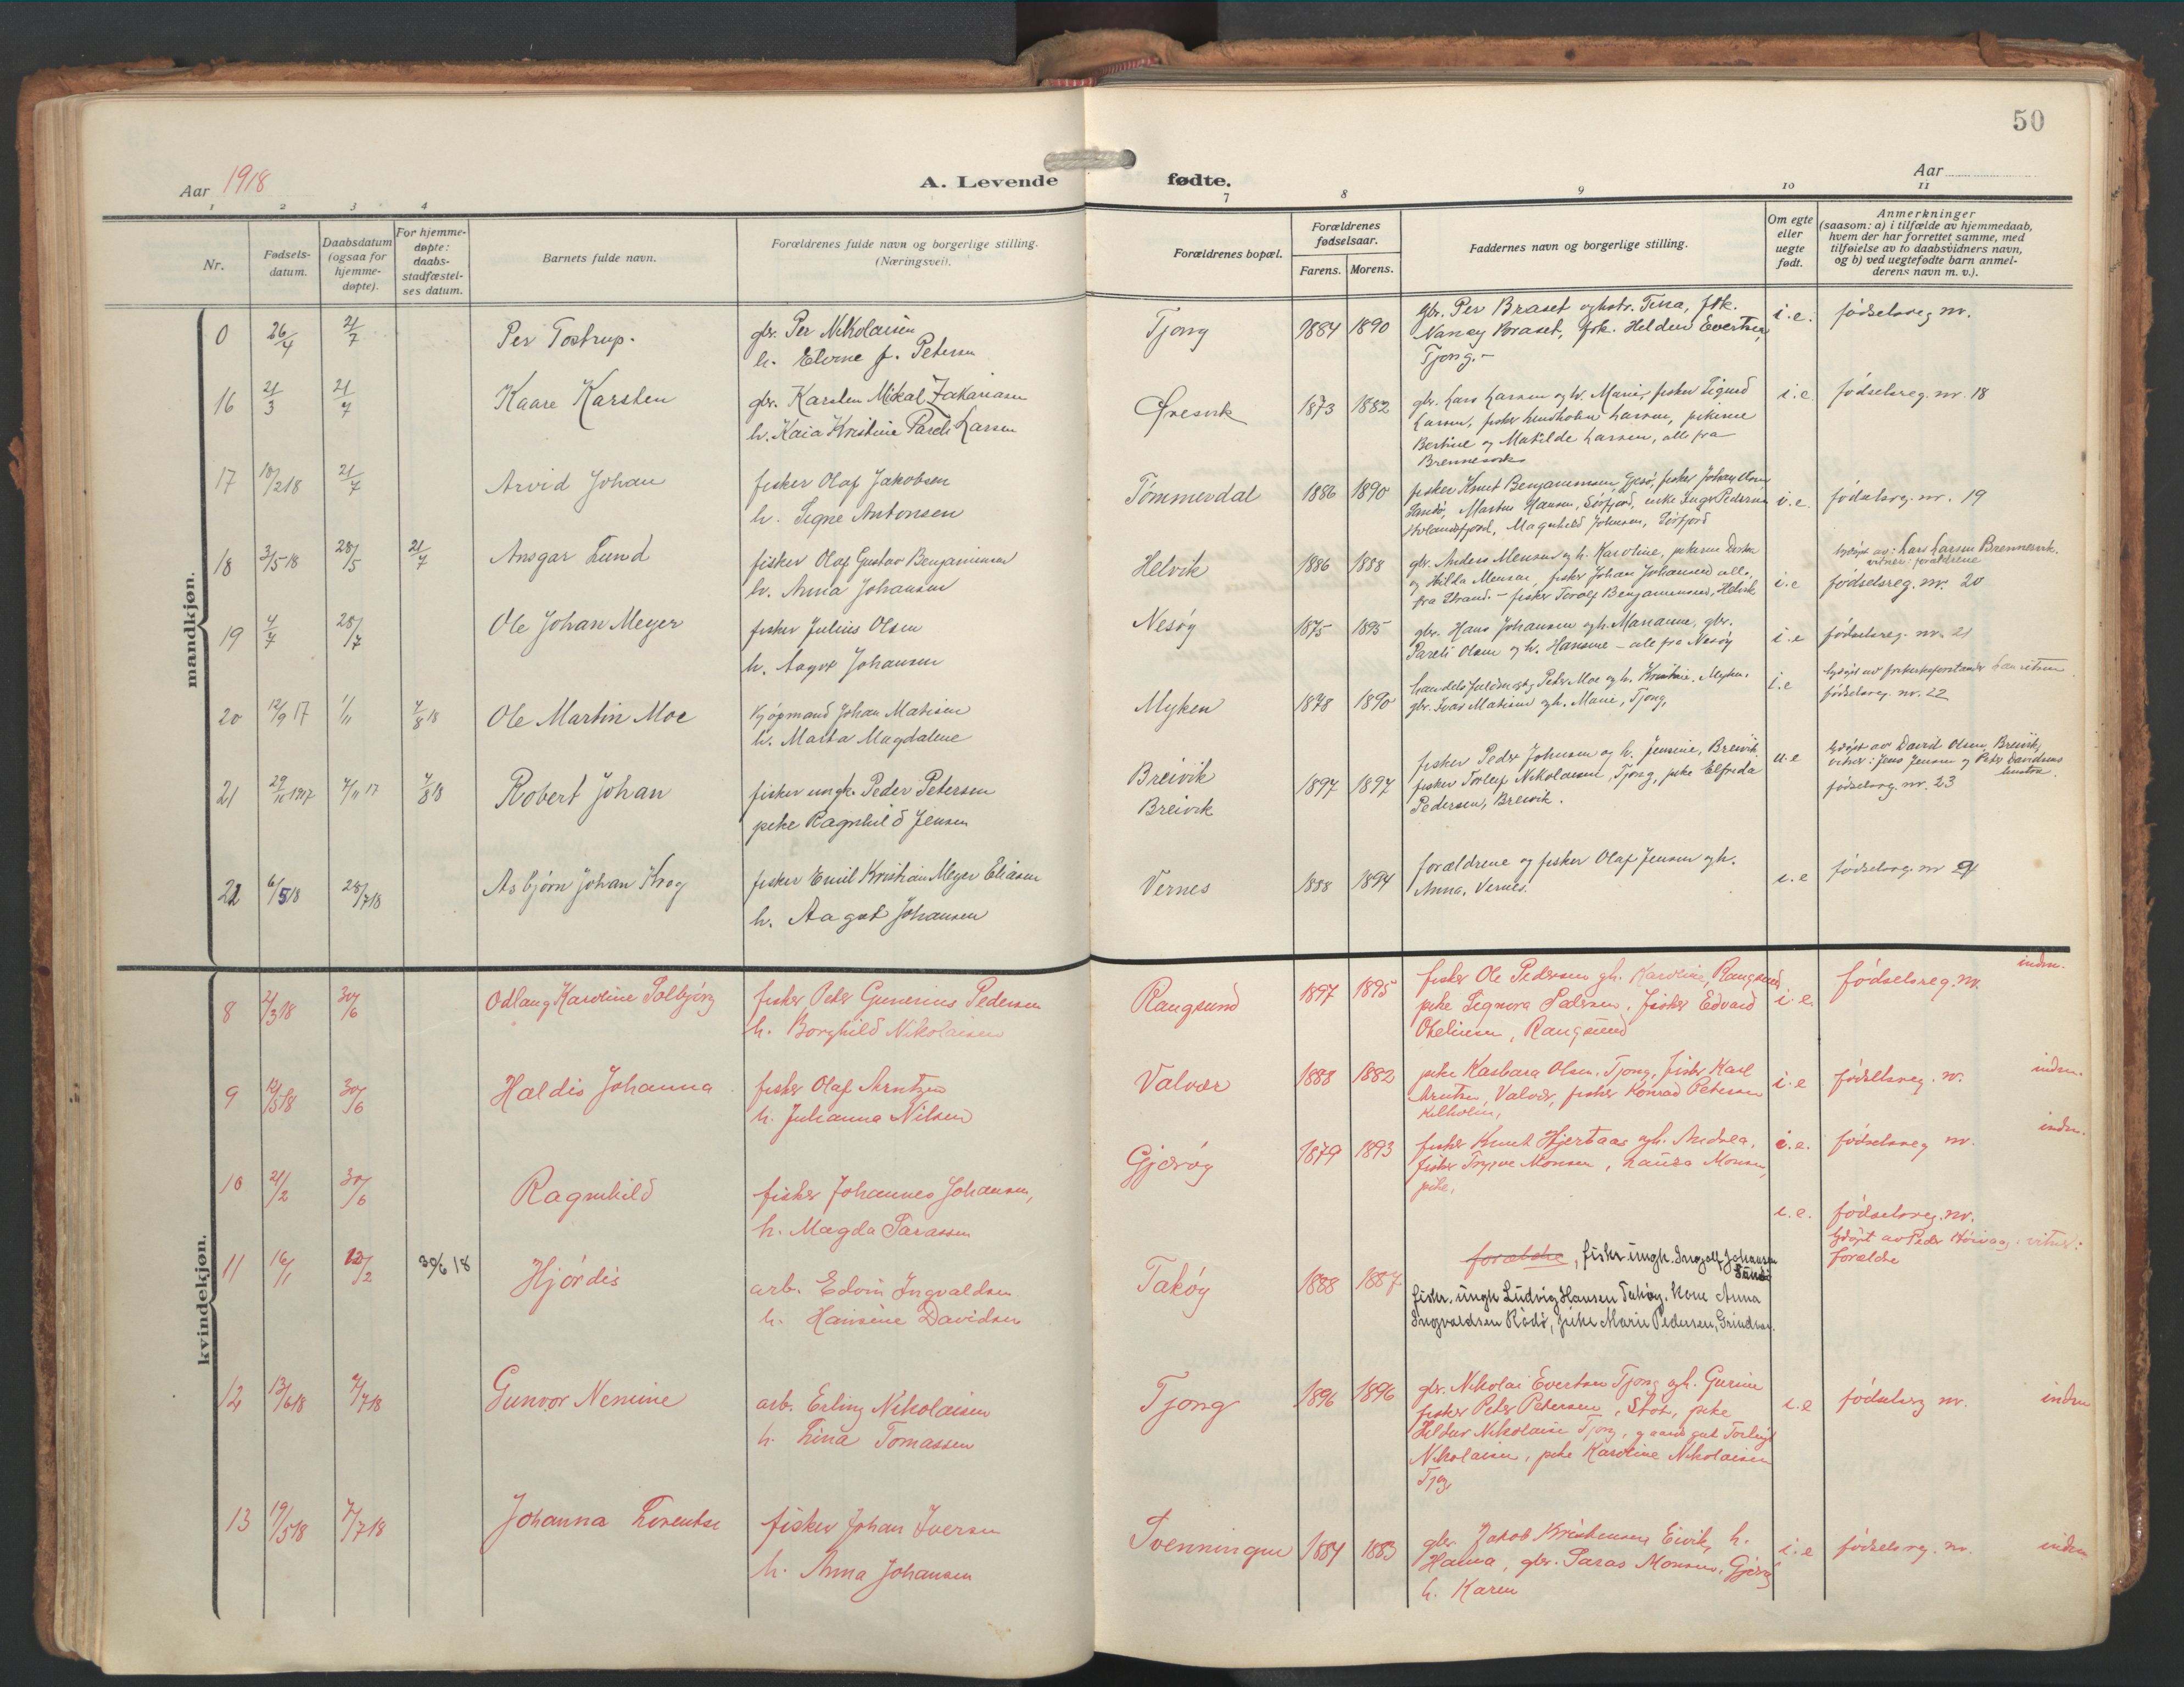 50
Aar 1918
A. Levende fødte.
Aar
1 2 3 4 7 8 9 10 11
Nr.
Fødsels-datum.
Daabsdatum (ogsaa for hjemme-døpte).
For hjemme-døpte: daabs-stadfæstel-ses datum.
Barnets fulde navn.
Forældrenes fulde navn og borgerlige stilling. (Næringsvei).
Forældrenes bopæl.
Forældrenes fødselsaar.
Farens. Morens.
Faddernes navn og borgerlige stilling.
Om egte eller uegte født.
Anmerkninger
(saasom: a) i tilfælde av hjemmedaab,
hvem der har forrettet samme, med
tilføielse av to daabsvidners navn,
og b) ved uegtefødte barn anmel-
derens navn m. v.).
mandkjøn.
0 26/4 21/7 Per Tostrup.
gbr. Per Nikolaisen
h. Elvine f. Petersen
Tjong 1884 1890
gbr. Per Braset og hstr. Tina, frk.
Nancy Braset, frk. Heldine Evertsen,
Tjong.-
i.e. fødselsreg nr.
16 21/3 21/7 Kaare Karsten
gbr. Karsten Mikal Zakariasen
h. Kaia Kristine Pareli Larsen
Øresvik 1873 1882
gbr. Lars Larsen og h. Marie, fisker Sigurd
Larsen, fisker Lindholm Larsen, pikerne
Bertine og Matilde Larsen, alle fra
Brennesvik
i.e. fødselsreg. nr. 18
17 18/2 18 21/7 Arvid Johan
fisker Olaf Jakobsen
h. Signe Antonsen
Tømmerdal 1886 1890
fisker Knut Benjaminsen, Gjesø, fisker Johan Olsen
Sandø, Martin Hansen, Sørfjord, enke Inger Pedersen
Melandsfjord, Magnhild Johnsen, Sørfjord
i.e. fødselsreg. nr. 19
18 3/5-18 28/5 21/7 Ansgar Lund
fisker Olaf Gustav Benjaminsen
h. Anna Johansen
Helvik 1886 1888
gbr. Anders Monsen og h. Karoline, pikerne
og Hilda Monsen, fisker Johan Johansen alle
fra Strand. - fisker Torolf Benjaminsen, Helvik
i.e
hjdøpt av: Lars Larsen Brennesvik.
vitner: forældrene
fødselsreg. nr. 20
19 4/4 28/7 Ole Johan Meyer
fisker Julius Olsen
h. Aagot Johansen
Nesøy 1875 1895
gbr. Hans Johansen og h. Marianne, gbr.
Pareli Olsen og h. Hansine - alle fra Nesøy
i.e fødselsreg. nr. 21
20 12/9 17 1/11 4/8 18 Ole Martin Moe
Kjøpmand Johan Matisen
h. Marta Magdalene
Myken 1878 1890
handelsfuldmegtig Peter Moe og h. Kristine, Myken,
gbr. Ivar Matisen og h. Marie, Tjong,
i.e
hjdøpt av forstander Lauritsen
fødselsreg. nr. 22
21 29/10 1917 4/11 17 4/8 18 Robert Johan
fisker ungk. Peder Petersen
pike Ragnhild Jensen
Breivik
Breivik
1897 1897
fisker Peder Johnsen og h. Jensine, Breivik
fisker Torleif Nikolaisen, Tjong, pike Elfrida
Pedersen, Breivik.
u.e
hjdøpt av David Olsen, Breivik,
vitner: Jens Jensen og Peter Davidsens
hustru.
fødselsreg. nr. 23
22 6/5 18 28/7 18 Asbjørn Johan Krog
fisker Emil Kristian Meyer Eliasen
h. Aagot Johansen
Vernes 1888 1894
forældrene og fisker Olaf Jensen og h.
Anna, Vernes.
i.e fødselsreg. nr
kvindekjøn.
8 2/3 18 30/6 Odlaug Karoline Solbjørg
fisker Peter Gunerius Pedersen
h. Borghild Nikolaisen
Rangsund 1897 1895
fisker Ole Pedersen og h. Karoline, Rangsund
pike Signora Pedersen, fisker Edvard
Oteliusen, Rangsund
i.e. fødselsreg. nr. indm.
9 12/5 18 30/6 Haldis Johanna
fisker Olaf Arntzen
h. Julianna Nilsen
Valvær 1888 1882
pike Kasbara Olsen, Tjong, fisker Karl
Arntsen, Valvær, fisker Konrad Petersen
Kilholm,
i.e fødselsreg. nr. indm.
10 21/2 30/6 Ragnhild
fisker Johannes Johansen,
h. Magda Sarassen
Gjerøy 1879 1893
fisker Knut Hjertaas og h. Andrea,
fisker Trygve Monsen, Laura Monsen,
pike.
i.e. fødselsreg nr. indm.
11 16/1 12/2 30/6 18 Hjørdis
arb. Edvin Ingvaldsen
h. Hansine Davidsen
Takøy 1888 1887
forældre, fisker ungk. Ingolf Johansen
Sundø
fisker. ungk Ludvig Hansen Takøy. Kone Anna
Ingvaldsen Rødø, pike Marie Pedersen, Grindvær.
i.e. fødselsreg. nr.
hjdøpt av Peder vitner:
forældre
12 13/6 18 7/7 18 Gunvor Nemine
arb. Erling Nikolaisen
h. Lina Tomassen
Tjong 1896 1896
gbr. Nikolai Evertsen Tjong og h. Gurine
fisker Peter Petersen, Støt, pike
Heldur Nikolaisen Tjong, gaardsgut Torleif
Nikolaisen, pike Karoline Nikolaisen
Tjong
i.e fødselsreg nr. indm
13 19/5 18 7/7 18 Johanna Lorentse
fisker Johan Iversen
h. Anna Johansen
Svenningen 1884 1883
gbr. Jakob Kristensen, Eivik, h.
Hanna, gbr. Saras Monsen, Gjerøy
h. Karen
i.e fødselsreg. nr. indm